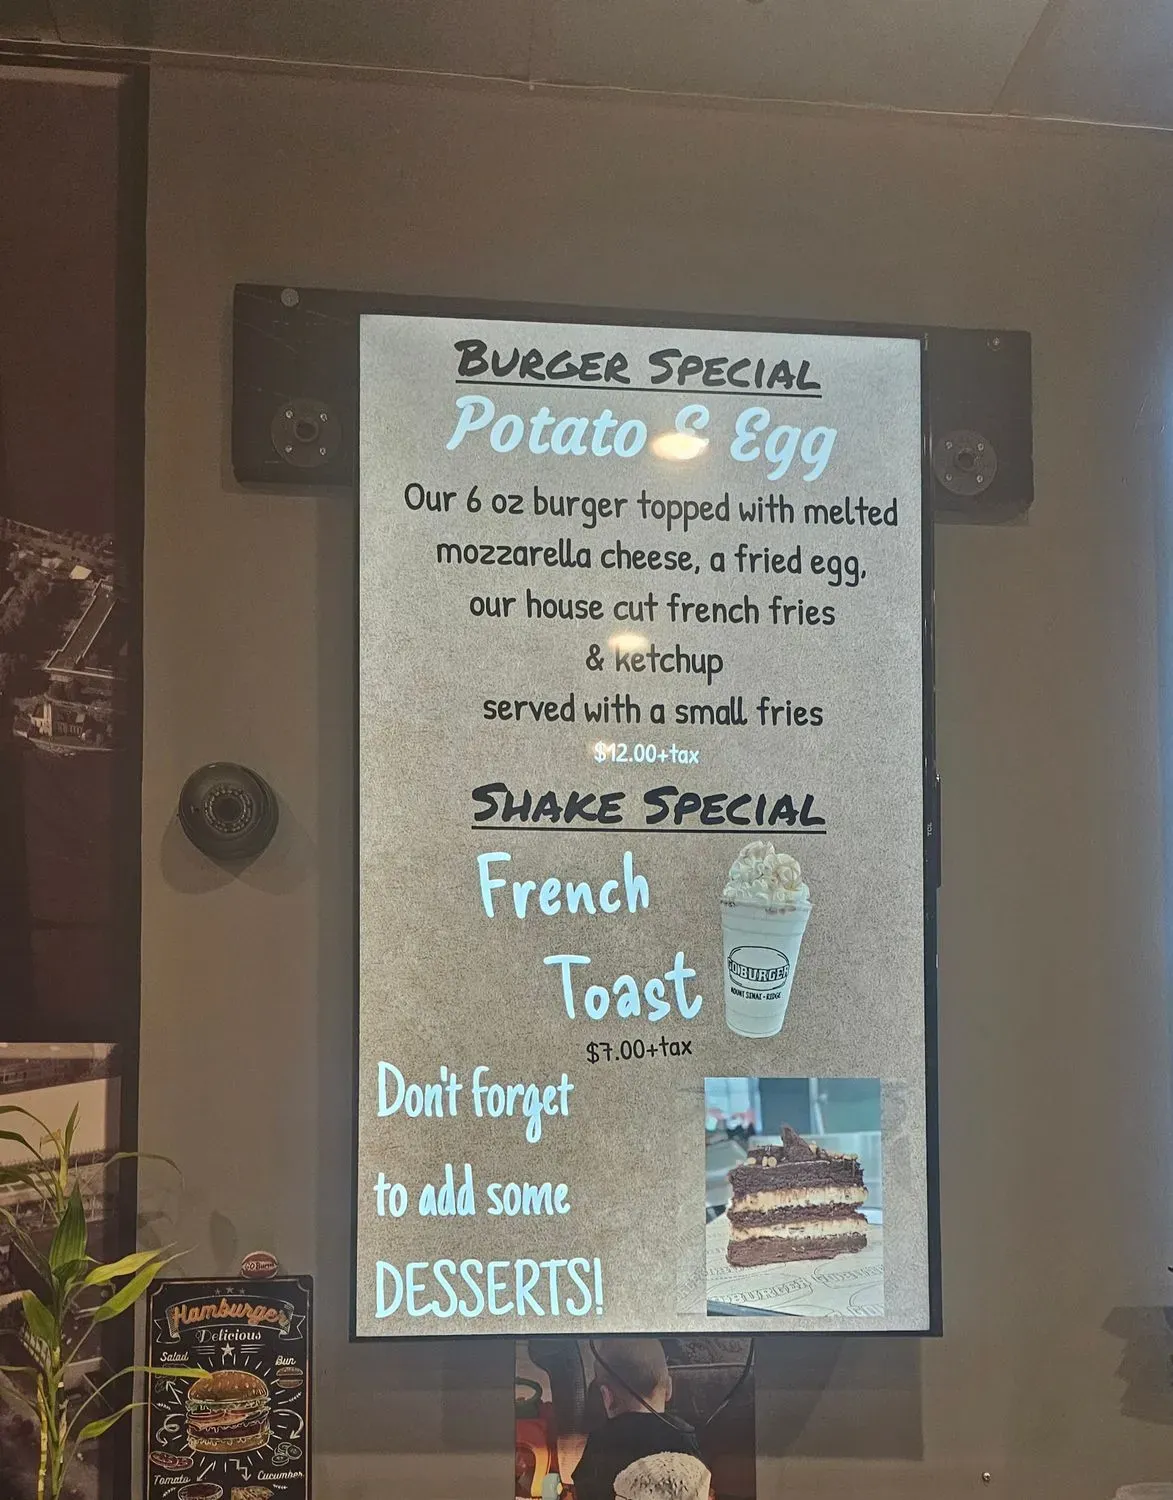 BURGER SPECIAL
Potato & Egg
Our 6 oz burger topped with melted
mozzarella cheese, a fried egg,
our house cut french fries
& ketchup
served with a small fries
$12.00+tax
SHAKE SPECIAL
French
Toast
GOBURGER
MOUNT SINAI - RIDGE
$7.00+tax
Don't forget
to add some
DESSERTS!
TCL
Hamburger
Delicious
Salad
Bun
Tomato
Cucumber